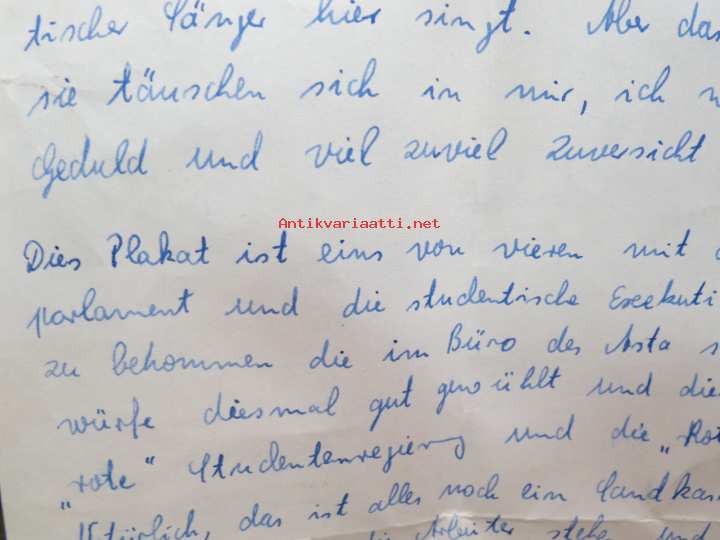 tischer Sänger hier singt. Aber das
sie täuschen sich in mir, ich
Geduld und viel zuviel Zuversicht
Antikvariaatti.net
Dies Plakat ist eins von vieren mit
parlament und die studentische Exekuti
zu bekommen die im Büro des Asta s
würfe diesmal gut gewühlt und die
„rote“ Studentenregierung und die „Rot
türlich, das ist alles noch ein Sandkas
die Arbeiter stehe und